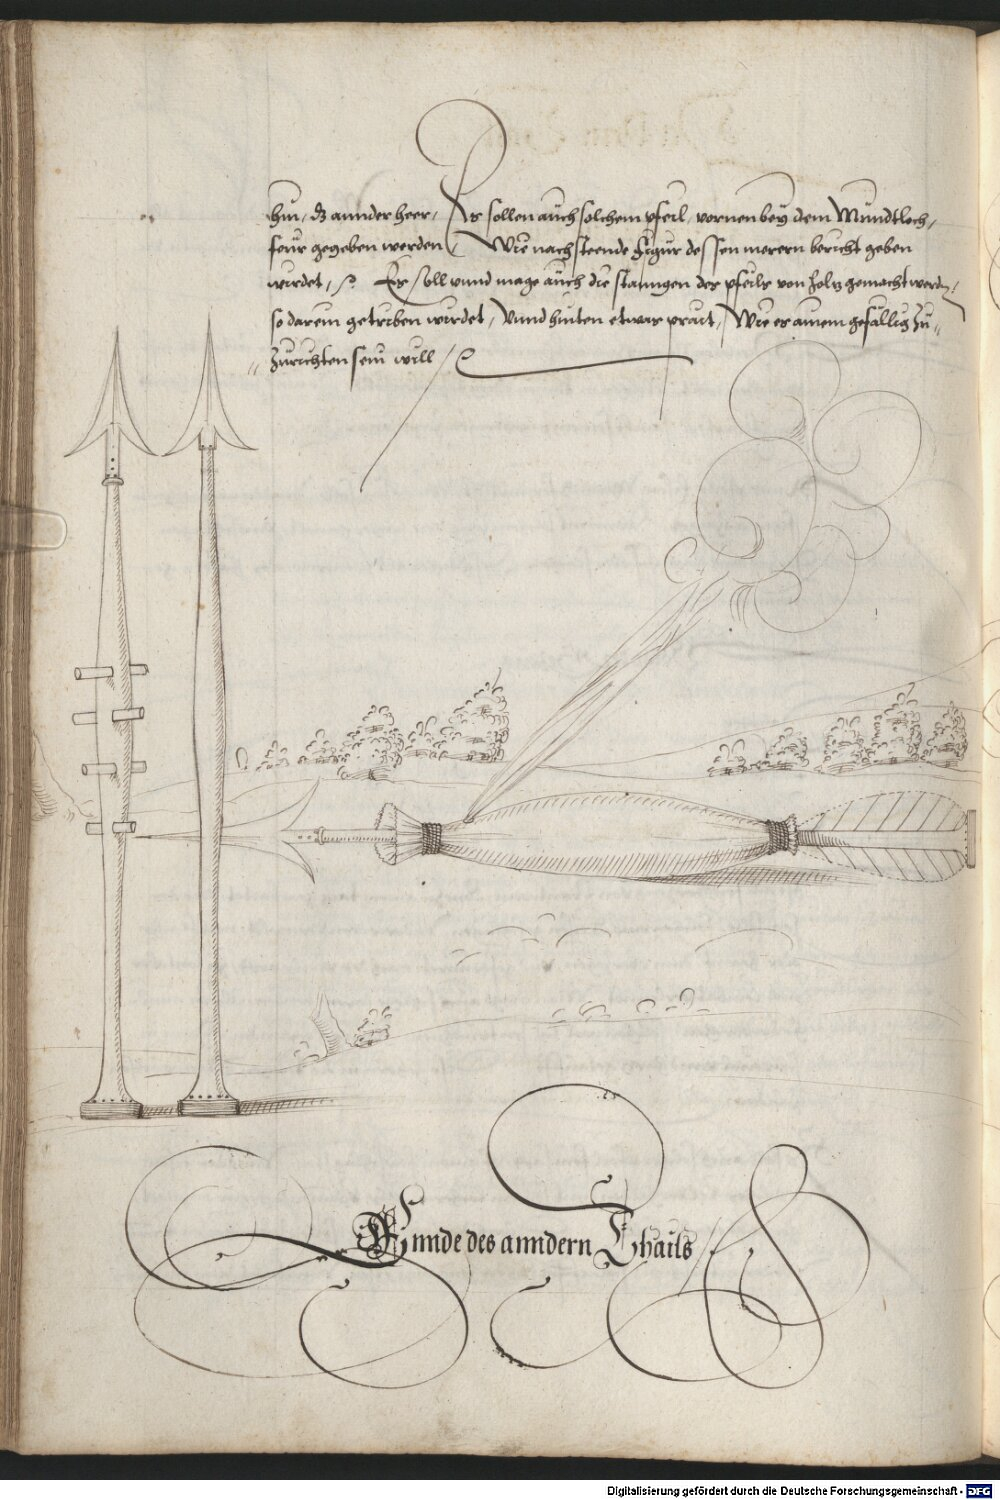 hin, dz annder heer, Es sollen auch solchem pfeil, vornen bey dem Mundtloch,
feur gegeben werden, Wie nachsteende figur dessen merern bericht geben
wirdet, Es soll unnd mage auch die stanngen des pfeils von holtz gemacht werden,
so darein getriben wirdet, Unnd hinten etwas prait, Wie es ainem gefällig zu
zurichten sein will
Ennde des anndern Thails
Digitalisierung gefördert durch die Deutsche Forschungsgemeinschaft - DFG